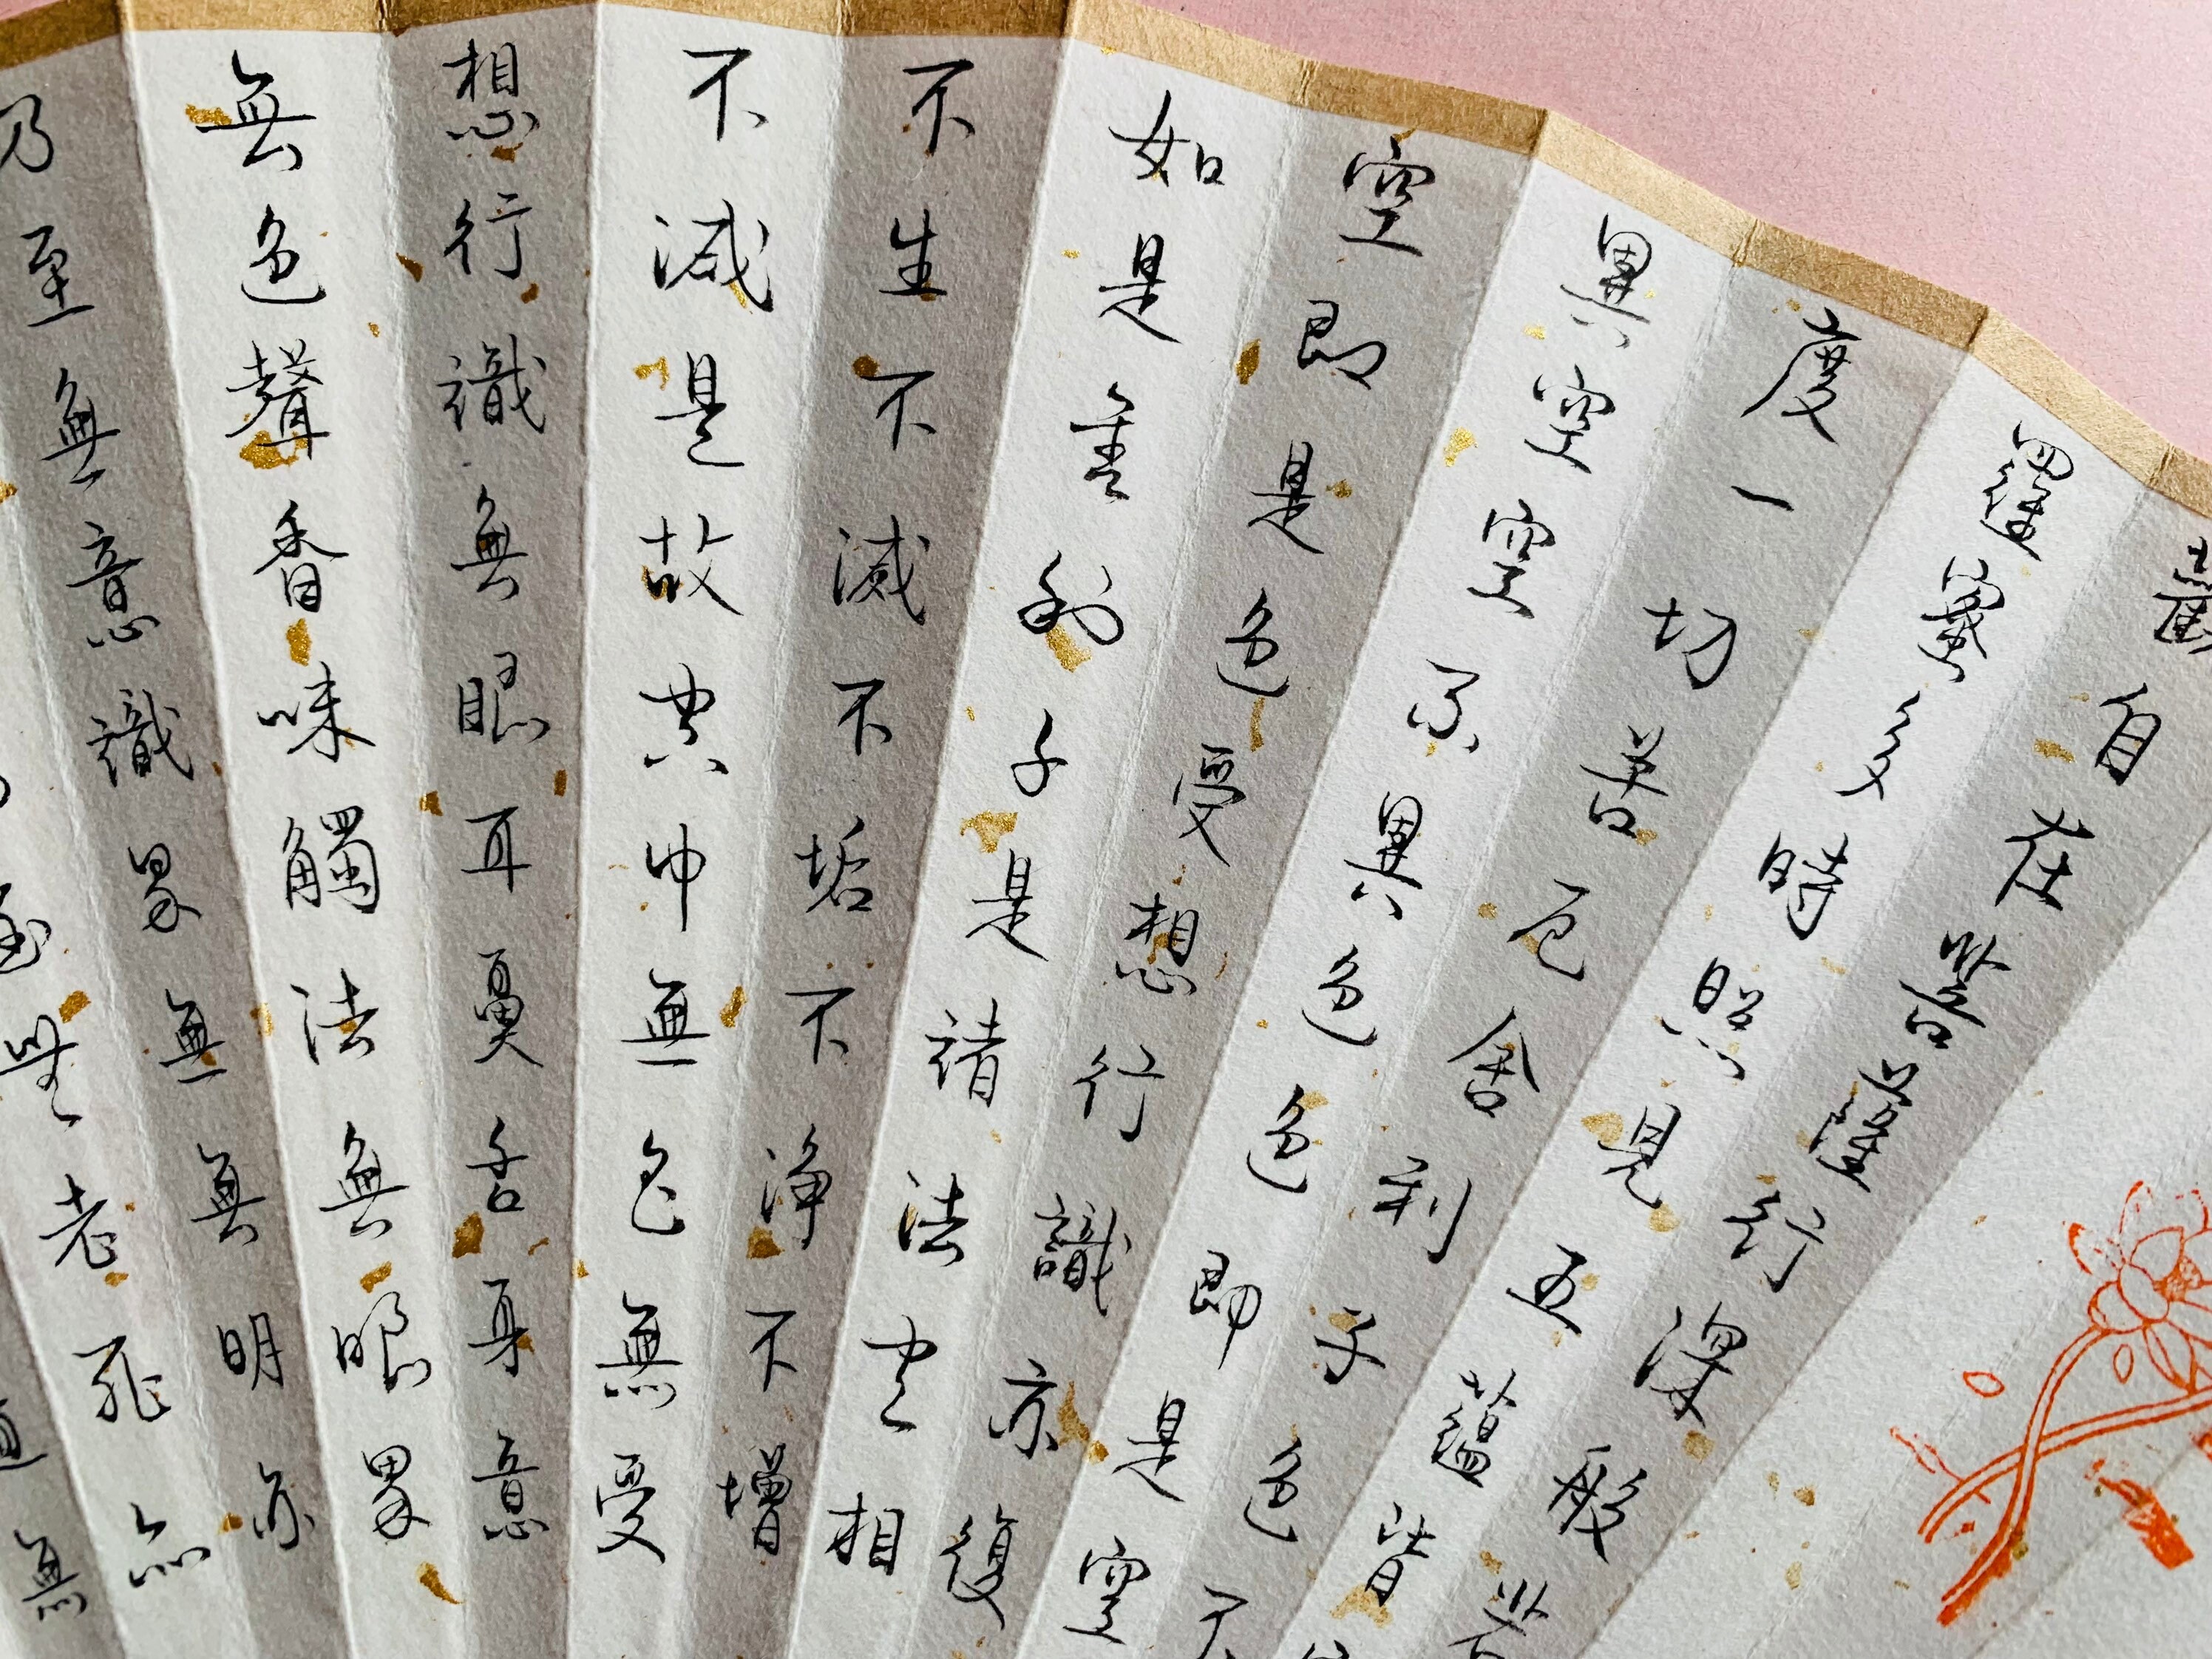 觀自在菩薩行深般若
羅蜜多時照見五蘊皆
度一切苦厄舍利子色不
異空空不異色色即是空
空即是色受想行識亦復
如是舍利子是諸法空相
不生不滅不垢不淨不增
不減是故空中無色無受
想行識無眼耳鼻舌身意
無色聲香味觸法無眼界
乃至無意識界無無明亦
至無老死亦
道無